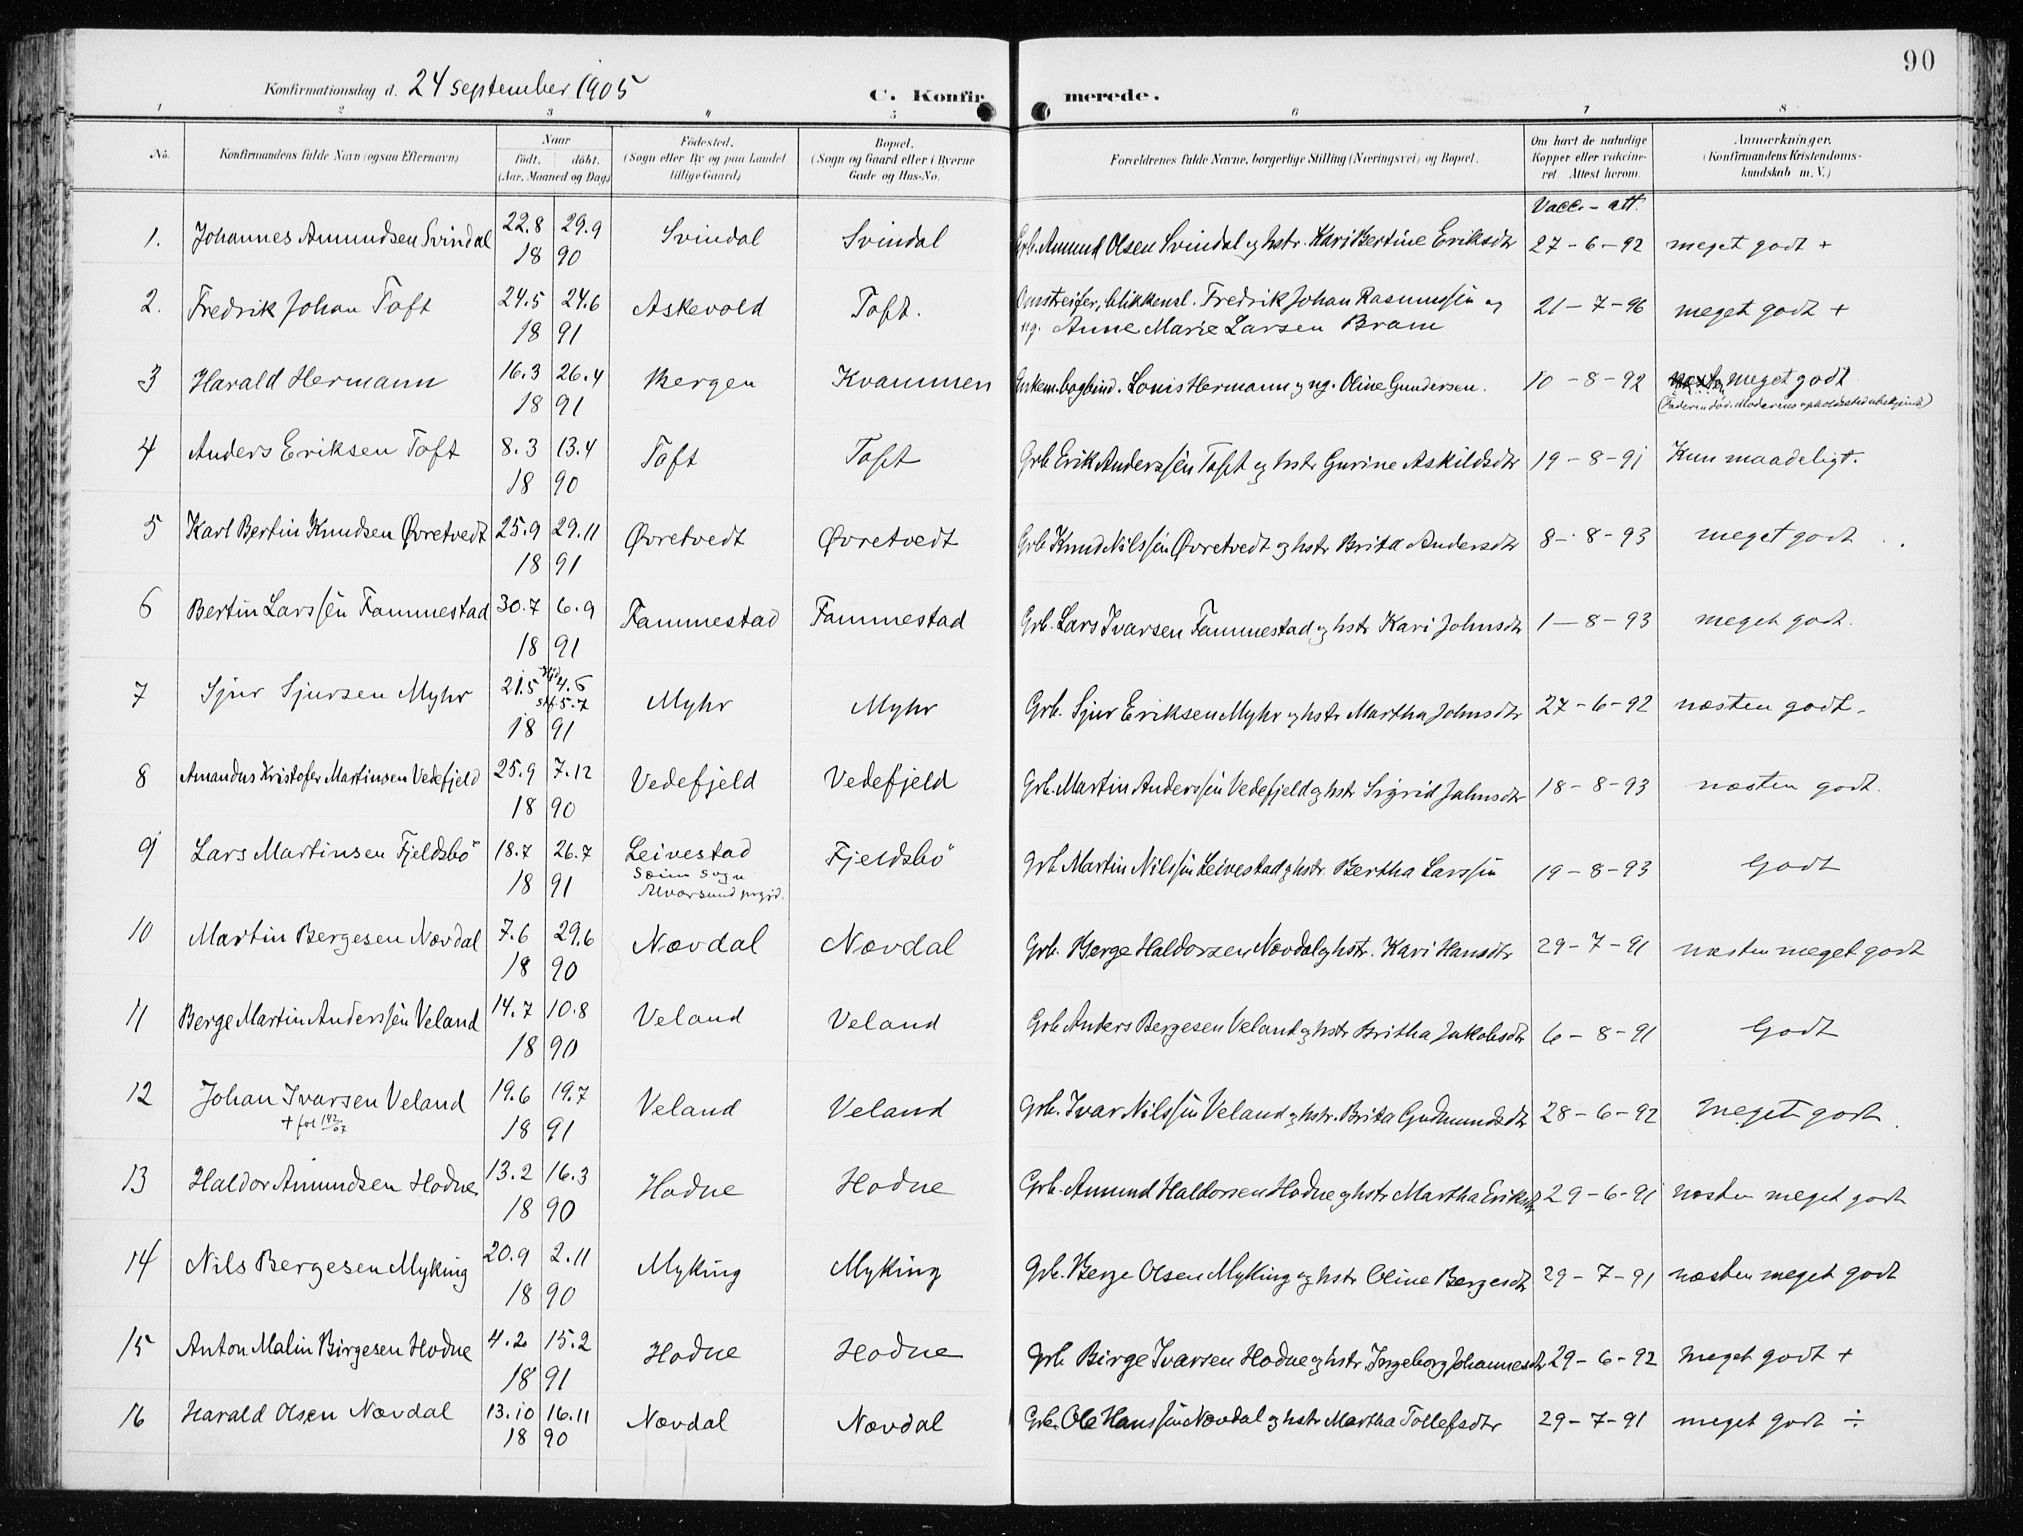 90
Konfirmationsdag d. 24 september 1905
C. Konfirmerede.
1 2 3 4 5 6 7 8
No. Konfirmandens fulde Navn (ogsaa Efternavn)
Naar
födt. döbt.
(Aar, Maaned og Dag)
Födested.
(Sogn eller By og paa Landet
tillige Gaard)
Bopæl.
(Sogn og Gaard eller i Byerne
Gade og Hus-No.
Forældrenes fulde Navne, borgerlige Stilling (Næringsvei) og Bopæl.
Om havt de naturlige
Kopper eller vaccine-
ret Attest herom.
Anmerkninger.
(Konfirmandens Kristendoms-
kundskab m. V.)
Vacc. - att.
1. Johannes Amundsen Svindal 22.8 29.9 Svindal Svindal Grb. Amund Olsen Svindal og hstr. Kari Bertine Eriksdtr 27-6-92 meget godt +
18 90
2. Fredrik Johan Toft 24.5 24.6 Askevold Toft. Omstreifer, blikkensl. Fredrik Johan Rasmussen og 21-7-96 meget godt +
18 91 ug. Anne Marie Larsen Bram
3 Harald Hermann 16.3 26.4 Bergen Kvammen Enkem. bogbind. Louis Hermann og ug. Oline Gundersen. 10-8-92 meget godt
18 91 (Faderen död. Moderens opholdssted ubekjendt)
4 Anders Eriksen Toft 8.3 13.4 Toft Toft Grb Erik Anderssen Toft og hstr Gurine Askildsdtr 19-8-91 Kun maadeligt.
18 90
5 Karl Bertin Knudsen Øvretvedt 25.9 29.11 Øvretvedt Øvretvedt Grb Knud Nilssen Øvretvedt og hstr Brita Andersdtr 8-8-93 meget godt
18 91
6 Bertin Larssen Fammestad 30.7 6.9 Fammestad Fammestad Grb. Lars Ivarsen Fammestad og hstr Kari Johnsdtr 1-8-93 meget godt.
18 91
7 Sjur Sjursen Myhr 21.5 Hjd 4.6 Myhr Myhr Grb. Sjur Eriksen Myhr og hstr Martha Johnsdtr 27-6-92 næsten godt.
stf. 5.7
18 91
8 Amandus Kristofer Martinsen Vedefjeld 25.9 7.12 Vedefjeld Vedefjeld Grb. Martin Anderssen Vedefjeld og hstr Sigrid Johnsdtr 18-8-93 næsten godt.
18 90
9 Lars Martinsen Fjeldsbö 18.7 26.7 Leivestad Fjeldsbö Grb Martin Nilssen Leivestad og hstr. Bertha Larssen 19-8-93 Godt
18 91 Sæim sogn
Alversund prgjd.
10 Martin Bergesen Nævdal 7.6 29.6 Nævdal Nævdal Grb. Berge Haldorsen Nævdal og hstr. Kari Hansdtr 29-7-91 næsten meget godt
18 90
11 Berge Martin Anderssen Veland 14.7 10.8 Veland Veland Grb Anders Bergesen Veland og hstr Britha Jakobsdtr 6-8-91 Godt
18 90
12 Johan Ivarsen Veland 19.6 19.7 Veland Veland Grb. Ivar Nilssen Veland og hstr. Brita Gudmundsdtr 28-6-92 Meget godt.
+ fol 142/07 18 91
13 Haldor Amundsen Hodne 13.2 16.3 Hodne Hodne Grb. Amund Haldorsen Hodne og hstr Martha Eriksdtr 29-6-91 næsten meget godt
18 90
14 Nils Bergesen Myking 20.9 2.11 Myking Myking Grb. Berge Olsen Myking og hstr Oline Bergesdtr 29-7-91 næsten meget godt
18 90
15 Anton Malin Birgesen Hodne 4.2 15.2 Hodne Hodne Grb Birge Ivarsen Hodne og hstr Ingeborg Johannesdtr 29-6-92 Meget godt +
18 91
16 Harald Olsen Nævdal 13.10 16.11 Nævdal Nævdal Grb. Ole Hanssen Nævdal og hstr Martha Tollefsdtr 29-7-91 meget godt ÷
18 90